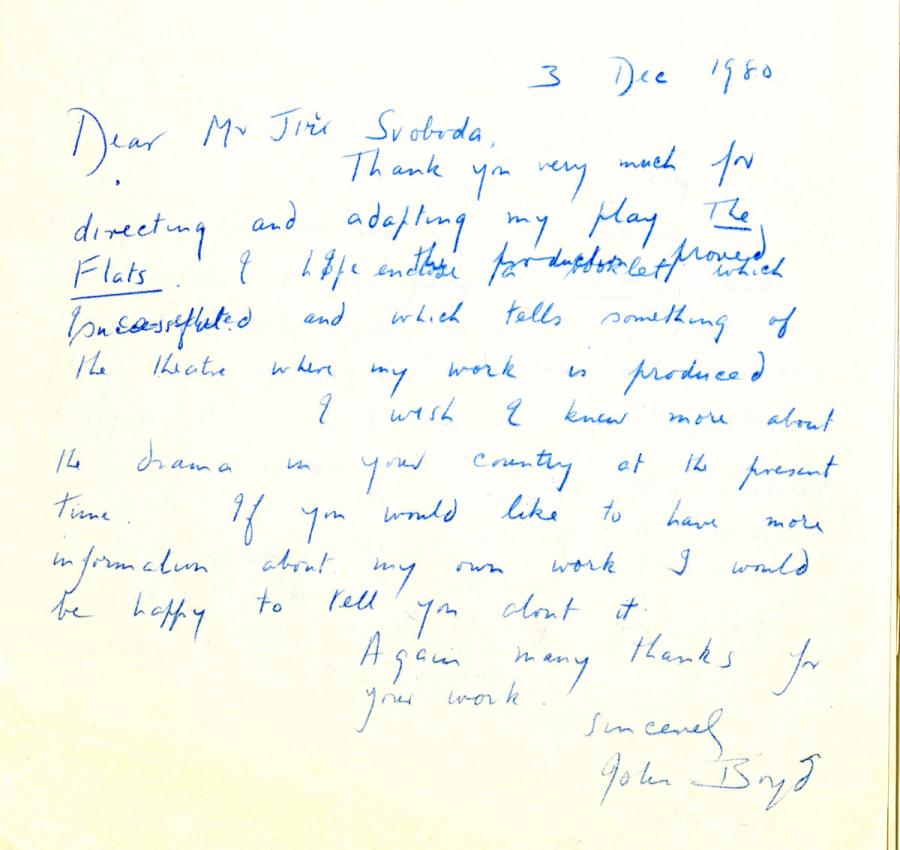 3 Dec 1980
Dear Mr Jiři Svoboda,
Thank you very much for
directing and adapting my play The
Flats. I hope the production proved
successful
enclose a booklet which
I edited and which tells something of
the theatre where my work is produced
I wish I knew more about
the drama in your country at the present
time. If you would like to have more
information about my own work I would
be happy to tell you about it.
Again many thanks for
your work.
Sincerely
John Boyd